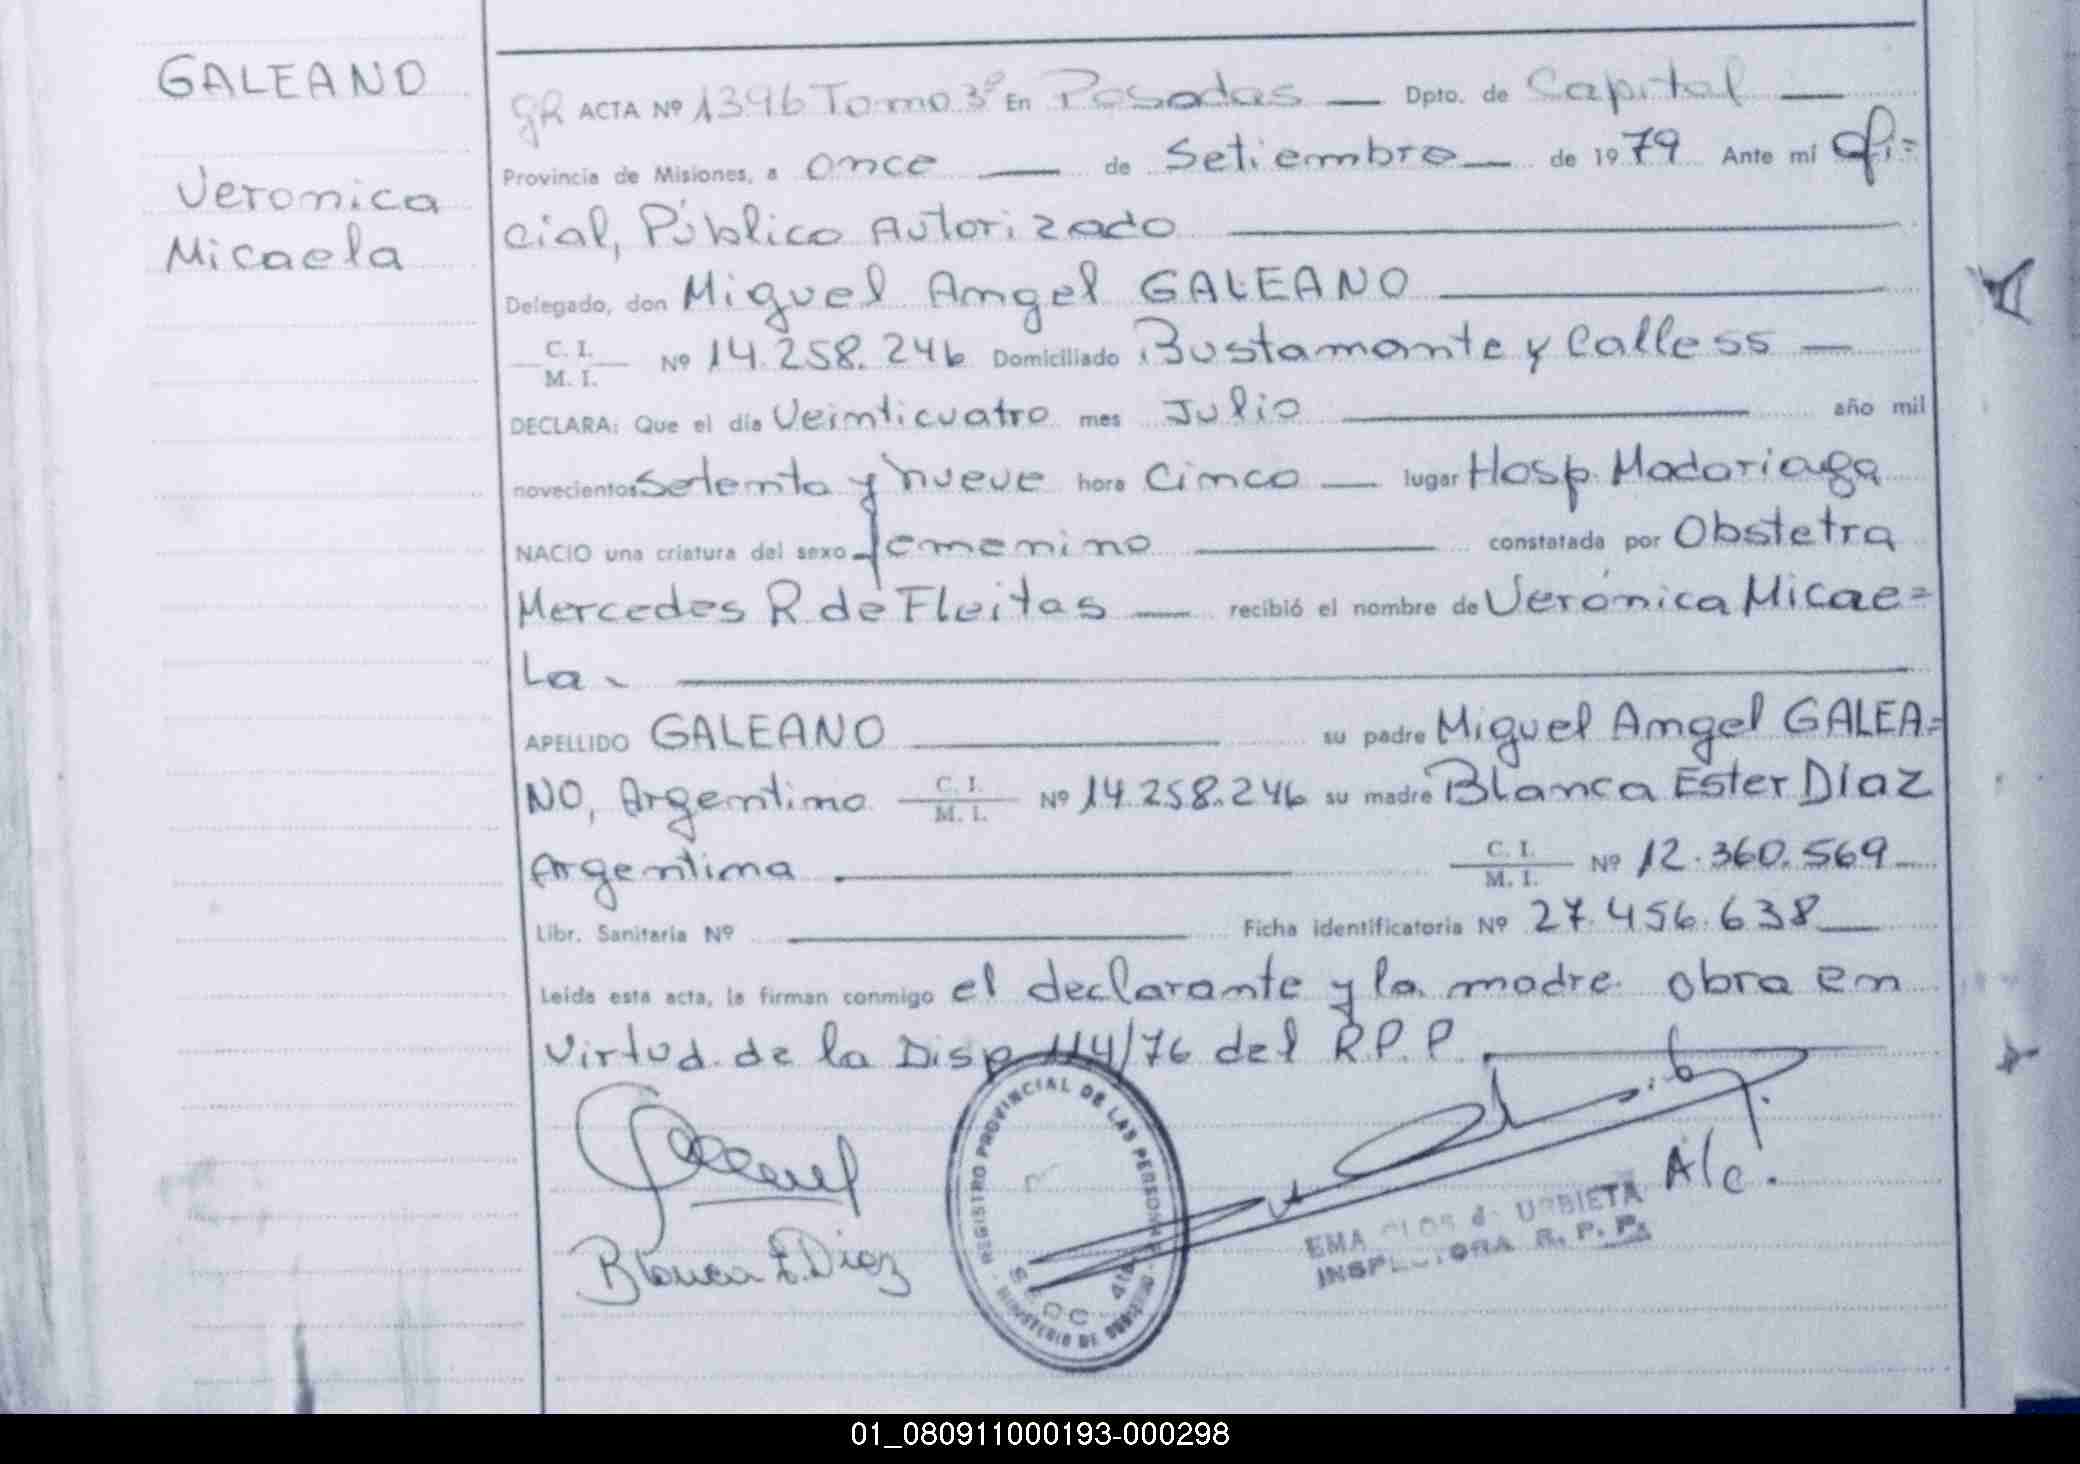 GALEANO
Veronica
Micaela
gR ACTA Nº 1396 Tomo 3º En Posadas — Dpto. de Capital —
Provincia de Misiones, a once — de Setiembre — de 1979 Ante mí Ofi=
cial, Público Autorizado
Delegado, don Miguel Angel GALEANO
C. I.
M. I. Nº 14.258.246 Domiciliado Bustamante y Calle 55 —
DECLARA: Que el día Veinticuatro mes Julio año mil
novecientos Setenta y nueve hora Cinco — lugar Hosp. Madariaga
NACIO una criatura del sexo femenino constatada por Obstetra
Mercedes R de Fleitas — recibió el nombre de Verónica Micae=
la.
APELLIDO GALEANO su padre Miguel Angel GALEA=
NO, Argentino C. I.
M. I. Nº 14.258.246 su madre Blanca Ester Diaz
Argentina C. I.
M. I. Nº 12.360.569
Libr. Sanitaria Nº Ficha identificatoria Nº 27.456.638
Leída esta acta, la firman conmigo el declarante y la madre. obra en
virtud de la Disp 114/76 del R.P.P
REGISTRO PROVINCIAL DE LAS PERSONAS
SECC. 4ta
MINISTERIO DE GOBIERNO
Blanca E. Diaz
Alc.
EMA de URBIETA
INSPECTORA R. P. P.
01_080911000193-000298